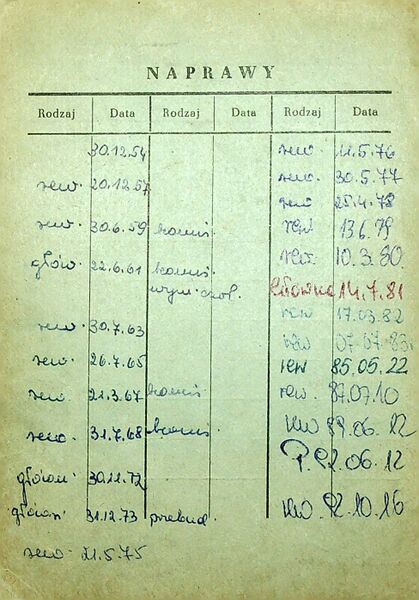 NAPRAWY
Rodzaj Data Rodzaj Data Rodzaj Data
30.12.54 rew 11.5.76
rew. 20.12.57 rew. 30.5.77
rew 25.4.78
rew. 30.6.59 rew 13.6.79
głów. 22.6.61 rew. 10.3.80
główna 14.7.81
rew 17.03.82
rew. 30.7.63 rew 07.07.83
rew. 26.7.65 rew 85.05.22
rew 21.3.67 rew. 87.07.10
rew. 31.7.68 rew 89.06.12
główn. 30.11.72 P. 92.06.12
główn. 31.12.73 przebud. rew. 92.10.16
rew. 21.5.75